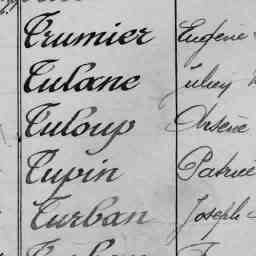 Trumier Eugène
Tulane Juley
Tuloup Arsène
Tupin Patrice
Turban Joseph